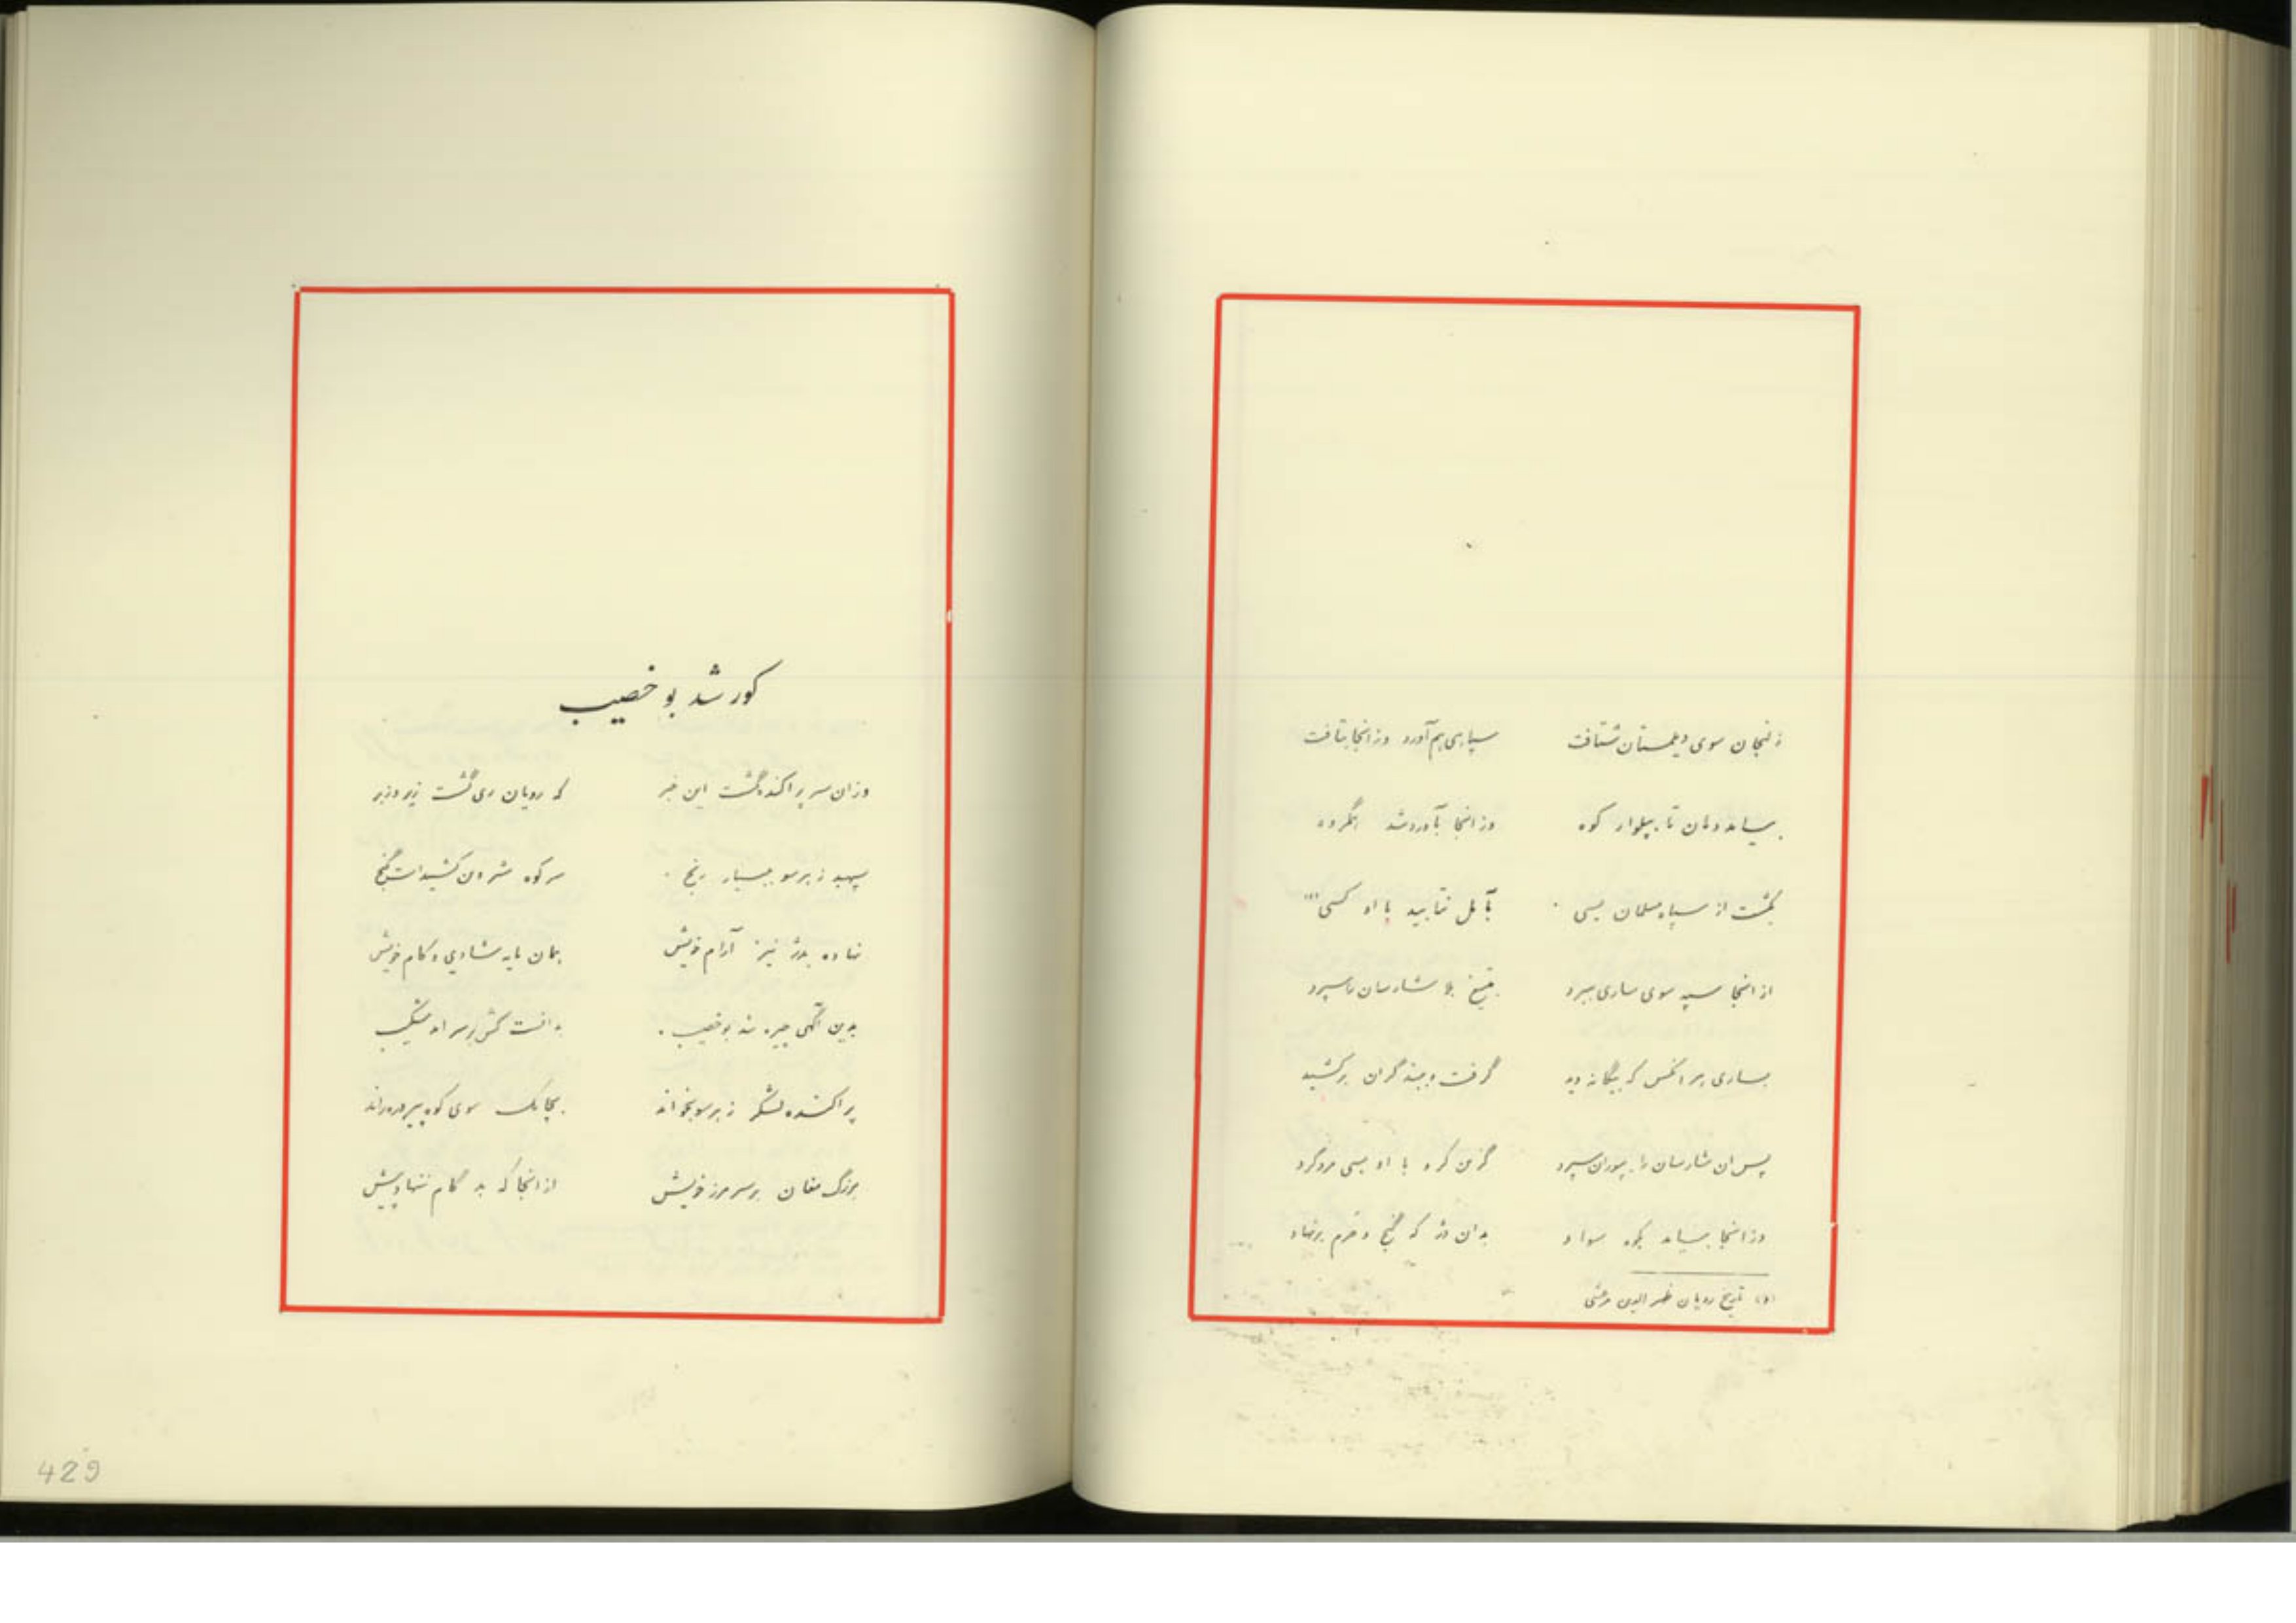 ز لنجان سوی دیلمستان شتافت سپاهی بهم آورد وز آنجا بتافت
بیامد دمان تا بپیلوار کوه وز آنجا بآورد شد
بکشت از سپاه مسلمان بسی بآمل نتابید با او کسی
از آنجا سپه سوی ساری ببرد بتیغ بلا شارسان را سپرد
بساری هر آنکس که بیگانه دید گرفت و ببند گران برکشید
پس آن شارسان را سپرد گزین کرد با او بسی مرد گرد
وز آنجا بیامد بکوه سواد بدان دژ که گنج و درم برنهاد
(۱) تاریخ رویان ظهیر الدین مرعشی
کور شد بو خصیب
وزان سر پراکنده گشت این خبر که رویان و ری گشت زیر و زبر
سپهبد ز هر سو ببسیار رنج سر کوه کشیدست گنج
نهاده بدژ نیز آرام خویش همان مایه شادی و کام خویش
بدین آگهی چیره شد بو خصیب بدانست کش بر سر آمد شکیب
پراکنده لشکر ز هر سو بخواند بچابک سوی کوه راند
بزرگ مغان بر سر مرز خویش از آنجا که بد گام ننهاد پیش
429